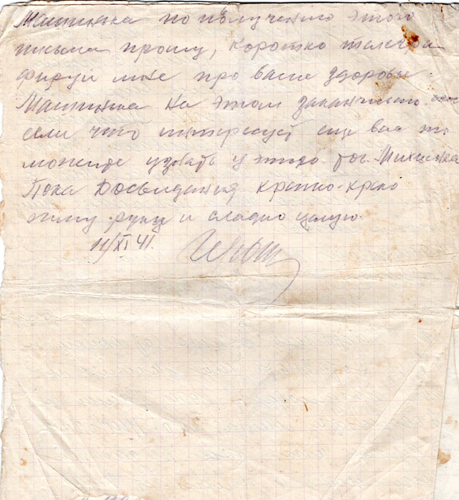 Машинка по получению этого
письма прошу, коротко телегра
фируй мне про ваше здоровье.
Машинка на этом заканчиваю
если что интересует еще вас то
можете узнать у этого тов.
Пока Досвидания крепко-крепко
жму руку и сладко целую.
11/XI 41.